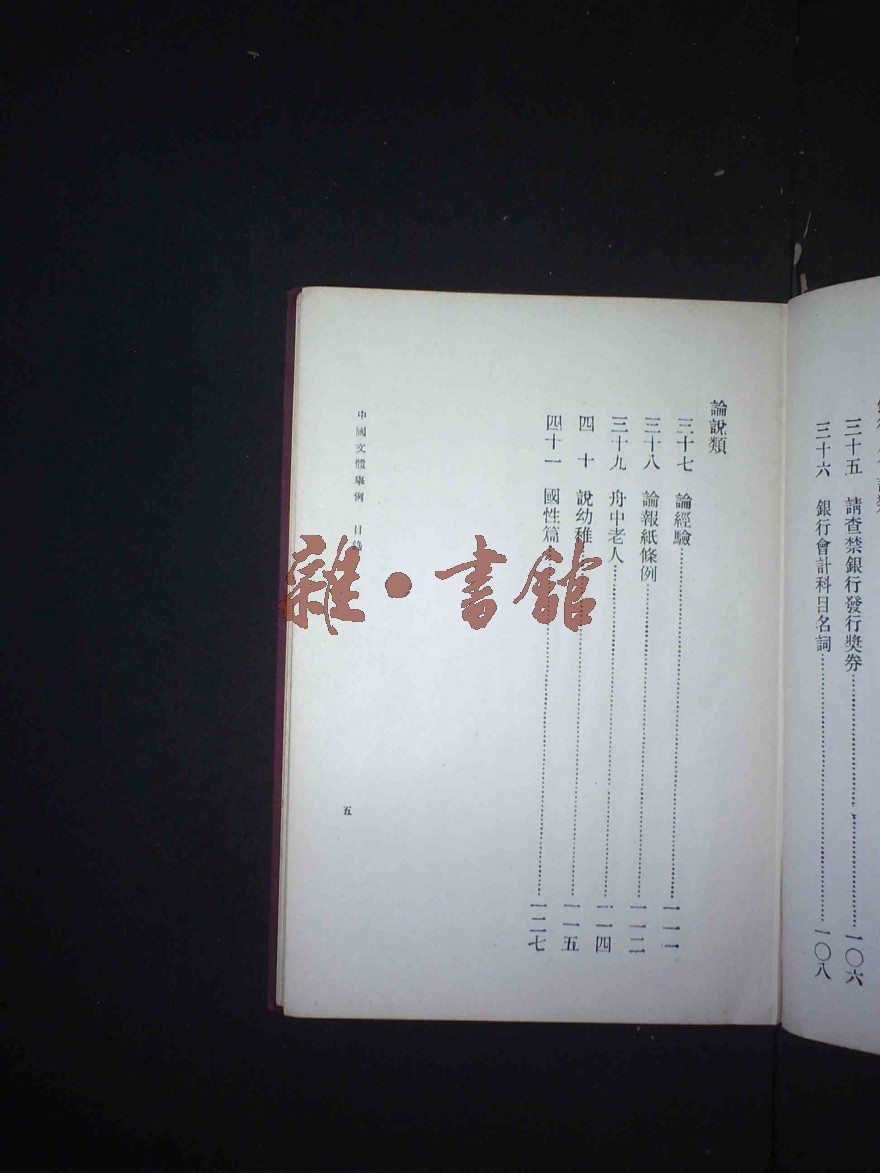 三十五 請查禁銀行發行獎券 一〇六
三十六 銀行會計科目名詞 一〇八
論說類
三十七 論經驗 一一一
三十八 論報紙條例 一一二
三十九 舟中老人 一一四
四十 說幼稚 一一五
四十一 國性篇 一二七
中國文體舉例 目錄
五
雜·書館